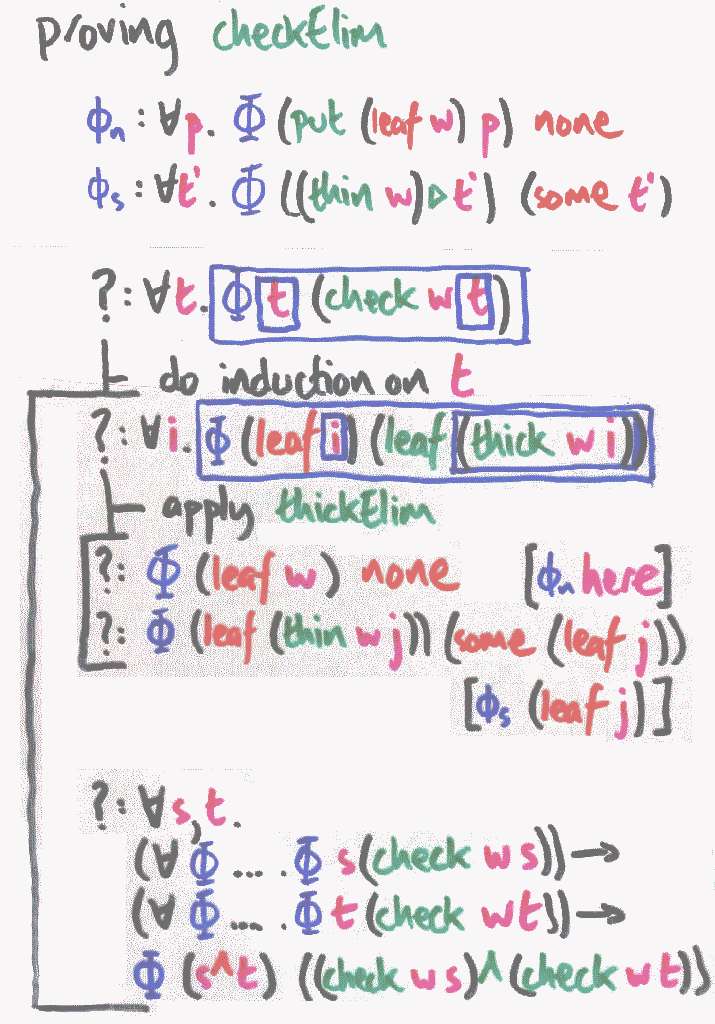 proving checkElim
ϕn : ∀p. Φ (put (leaf w) p) none
ϕs : ∀t'. Φ ((thin w) ▷ t') (some t')
? : ∀t. Φ t (check w t)
do induction on t
? : ∀i. Φ (leaf i) (leaf (thick w i))
apply thickElim
? : Φ (leaf w) none [ϕn here]
? : Φ (leaf (thin w j)) (some (leaf j))
[ϕs (leaf j)]
? : ∀s,t.
(∀Φ.... Φ s (check w s)) →
(∀Φ.... Φ t (check w t)) →
Φ (s^t) ((check w s)^(check w t))